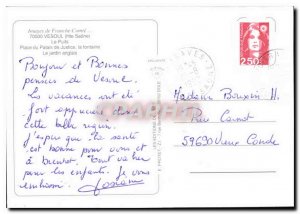 Images de Franche-Comté
70000 VESOUL (Hte Saône)
Le Puits
Place du Palais de Justice, la fontaine
Le jardin anglais
Bonjour et Bonnes
pensées de Vesoul.
Les vacances ont été
fort appréciées dans
cette belle région.
J'espère que la santé
est bonne pour vous et
à bientôt. Tout va bien
pour les enfants. Je vous
embrasse.
2,50
Madame H.
Rue Carnot
59690 Vieux Condé